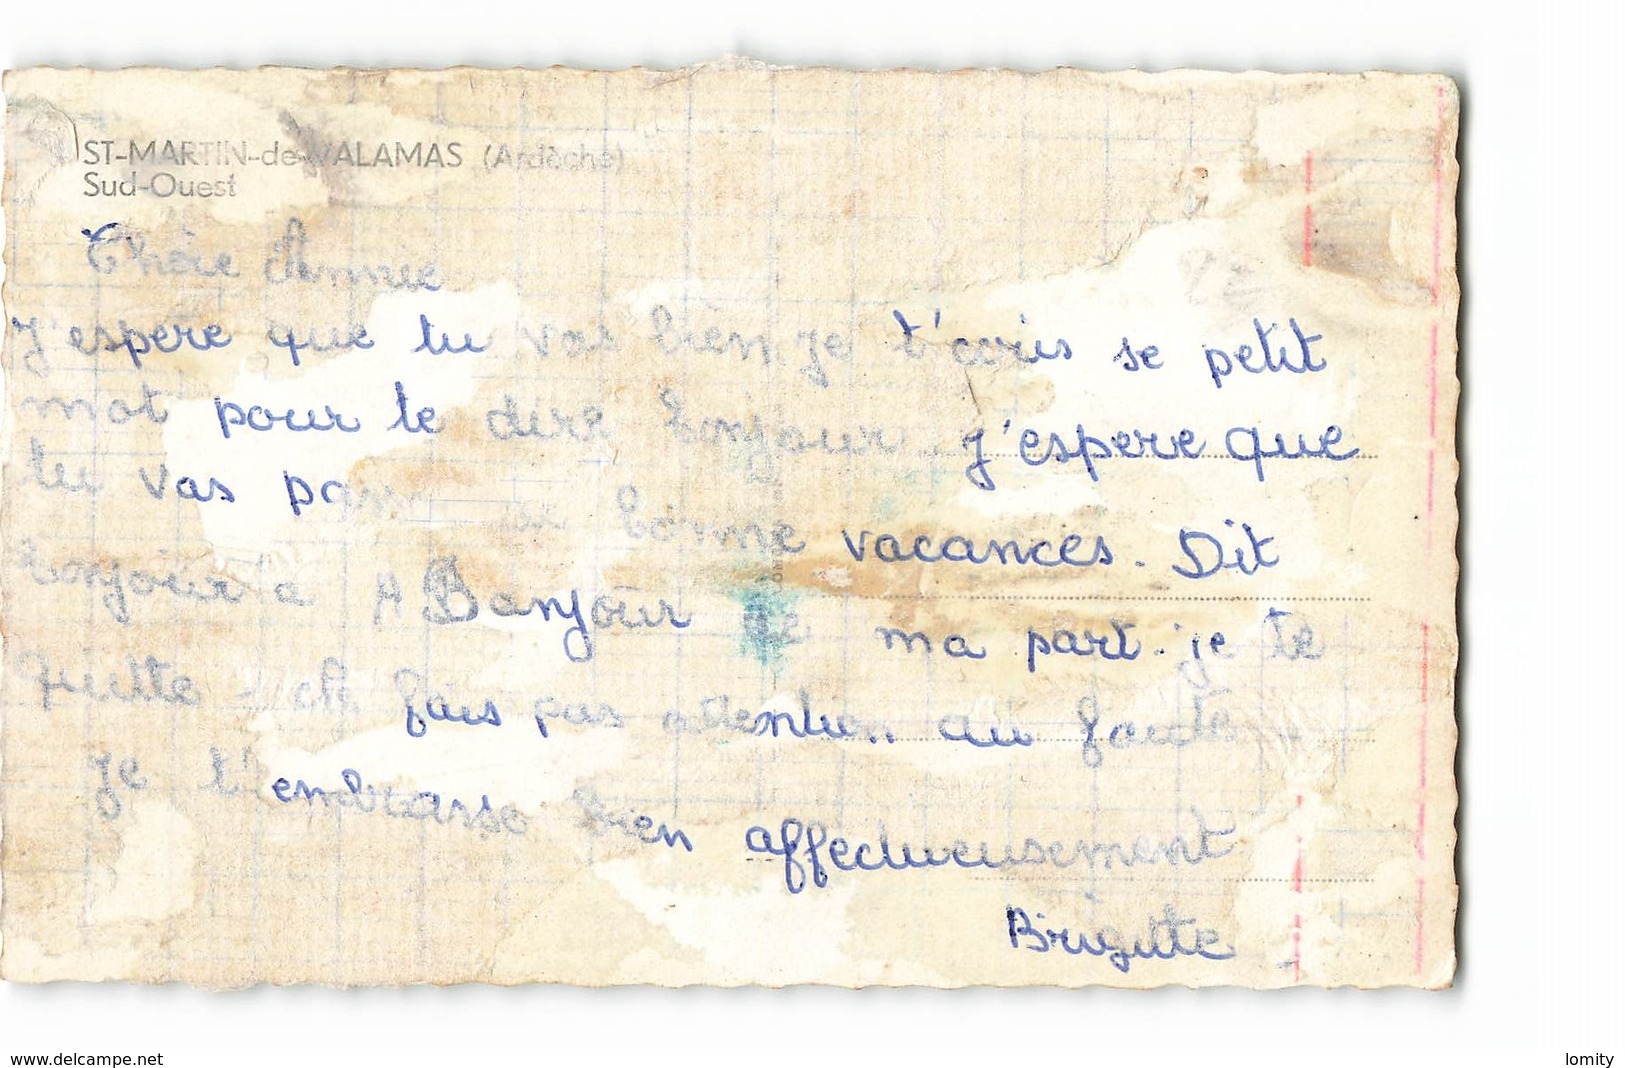 ST-MARTIN-de-VALAMAS (Ardèche)
Sud-Ouest
Chère Amie
J'espere que tu vas bien je t'ecris se petit
mot pour te dire bonjour. J'espere que
tu vas bonne vacances. Dit
bonjour a Bonjour de ma part. je te
quitte fais pas attention au faute
je t'embrasse bien affectueusement
Brigitte
www.delcampe.net
lomity